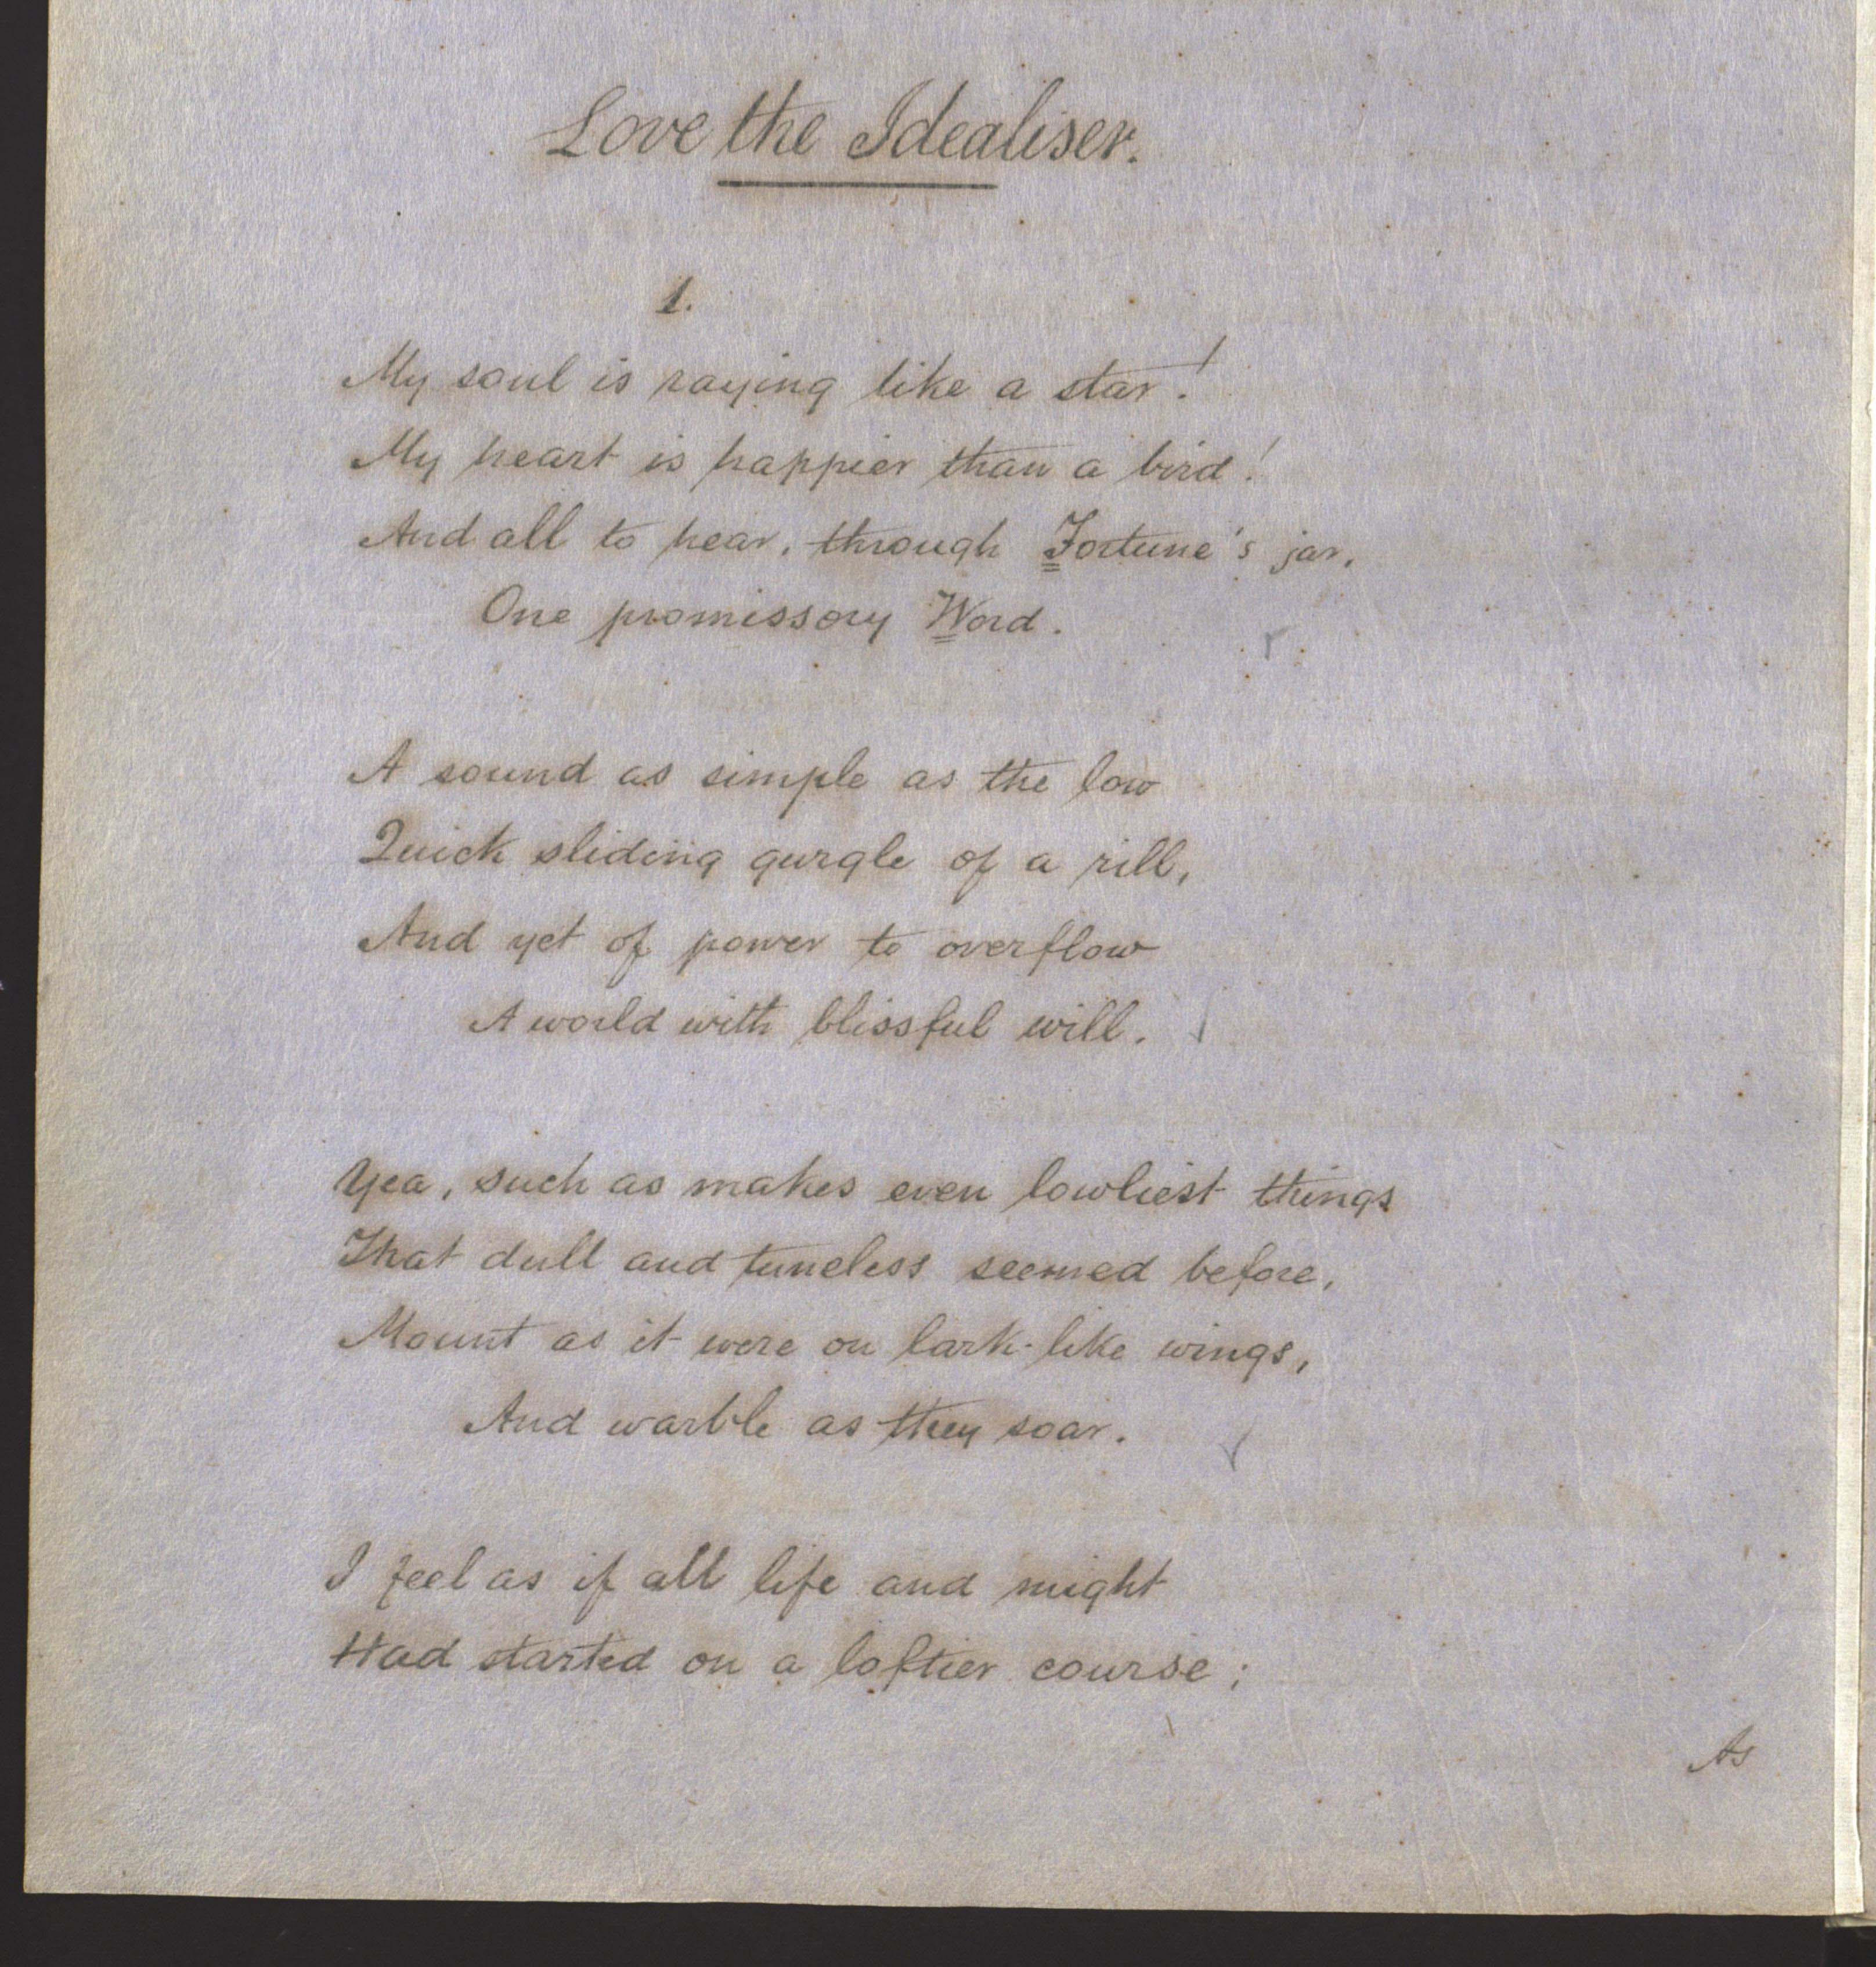 Love the Idealiser.
1.
My soul is raying like a star!
My heart is happier than a bird!
And all to hear, through Fortune's jar,
One promissory Word.
A sound as simple as the low
Quick sliding gurgle of a rill,
And yet of power to overflow
A world with blissful will.
Yea, such as makes even lowliest things
That dull and tuneless seemed before,
Mount as it were on lark-like wings,
And warble as they soar.
I feel as if all life and might
Had started on a loftier course;
As